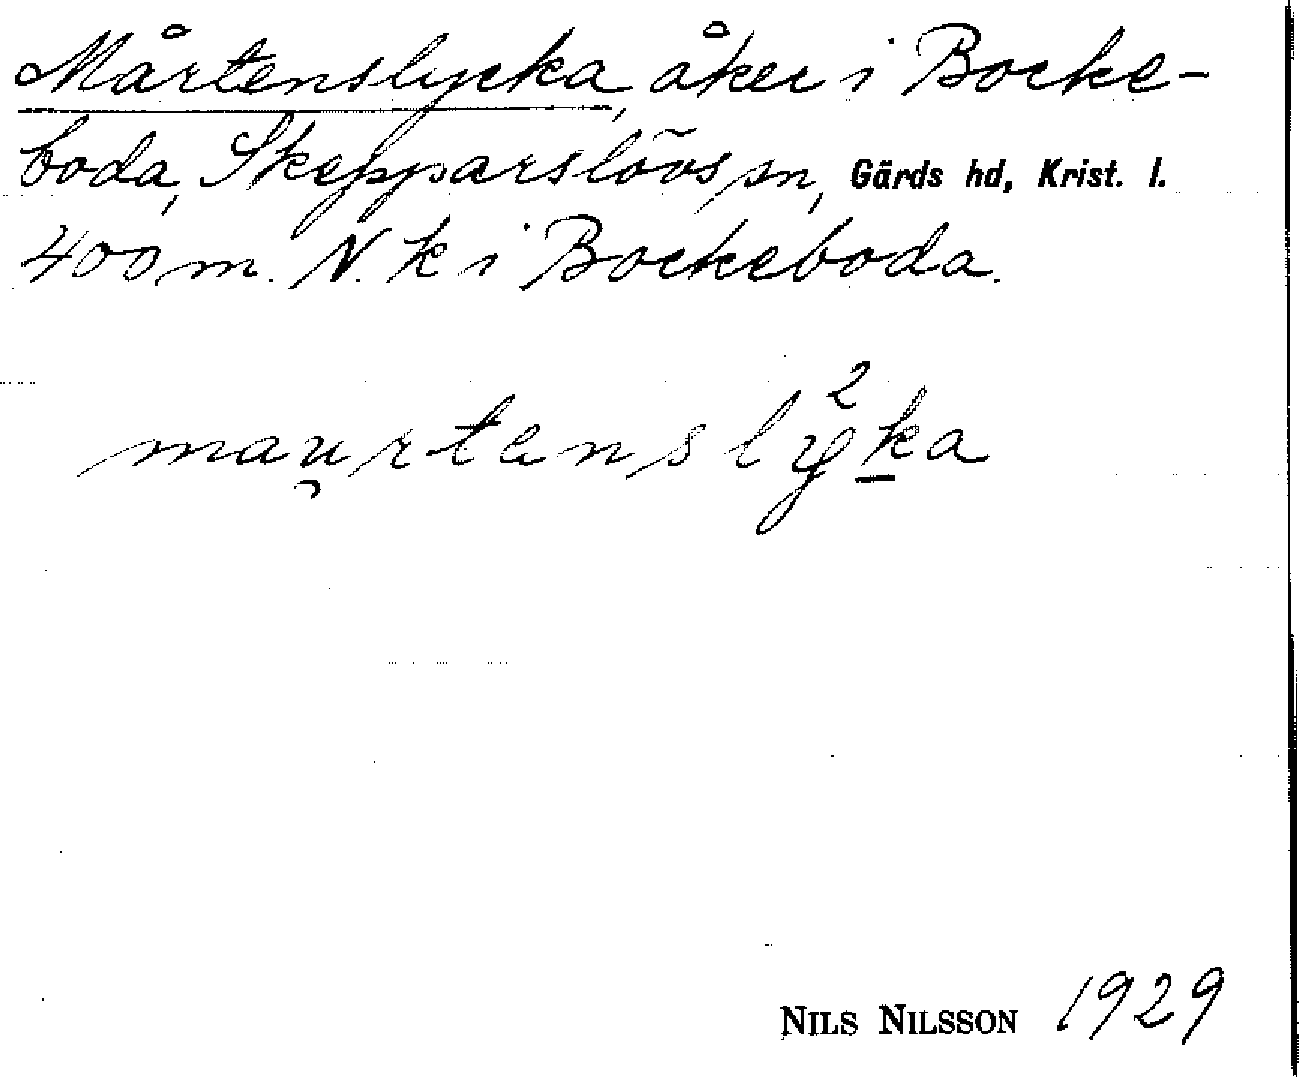 Mårtenslycka, åker i Bocke-
boda, Skepparslövs sn, Gärds hd, Krist. l.
400 m. N. k i Bockeboda.
mau̯rtenslý²ka
NILS NILSSON 1929